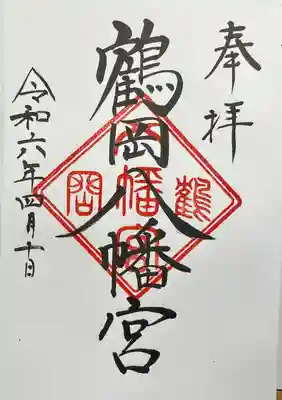 奉拝
鶴岡八幡宮
令和六年四月十日
鶴
岡